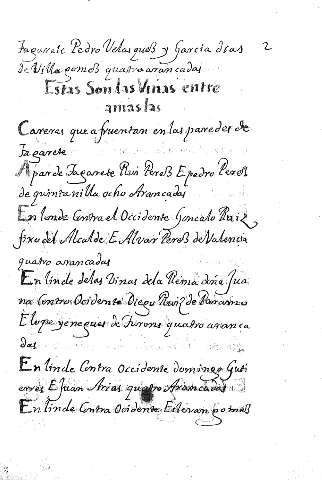 Jagarete Pedro Velasquoß y Garcia dias 2
de Villagomoß quatro arancadas
Estas Son las Viñas entre
amas las
Careras que afruentan en las paredes de
Jagarete
A par de Jagarete Rui Pereß E pedro Pereß
de quintanilla ocho Arancadas
En linde Contra el Occidente Gonçalo Ruiz
fixo del Alcalde E Alvar Pereß de Valencia
quatro arancadas
En linde de las Vinas de la Reina doña Jua
na Contra Ocidente Diego Ruiz de Paramo
E lope yenegues de Turons quatro arranca
das
En linde Contra Occidente domingo Guti
erres E Juan Arias quatro Arancadas
En linde Contra Ocidente Estevam gomeß